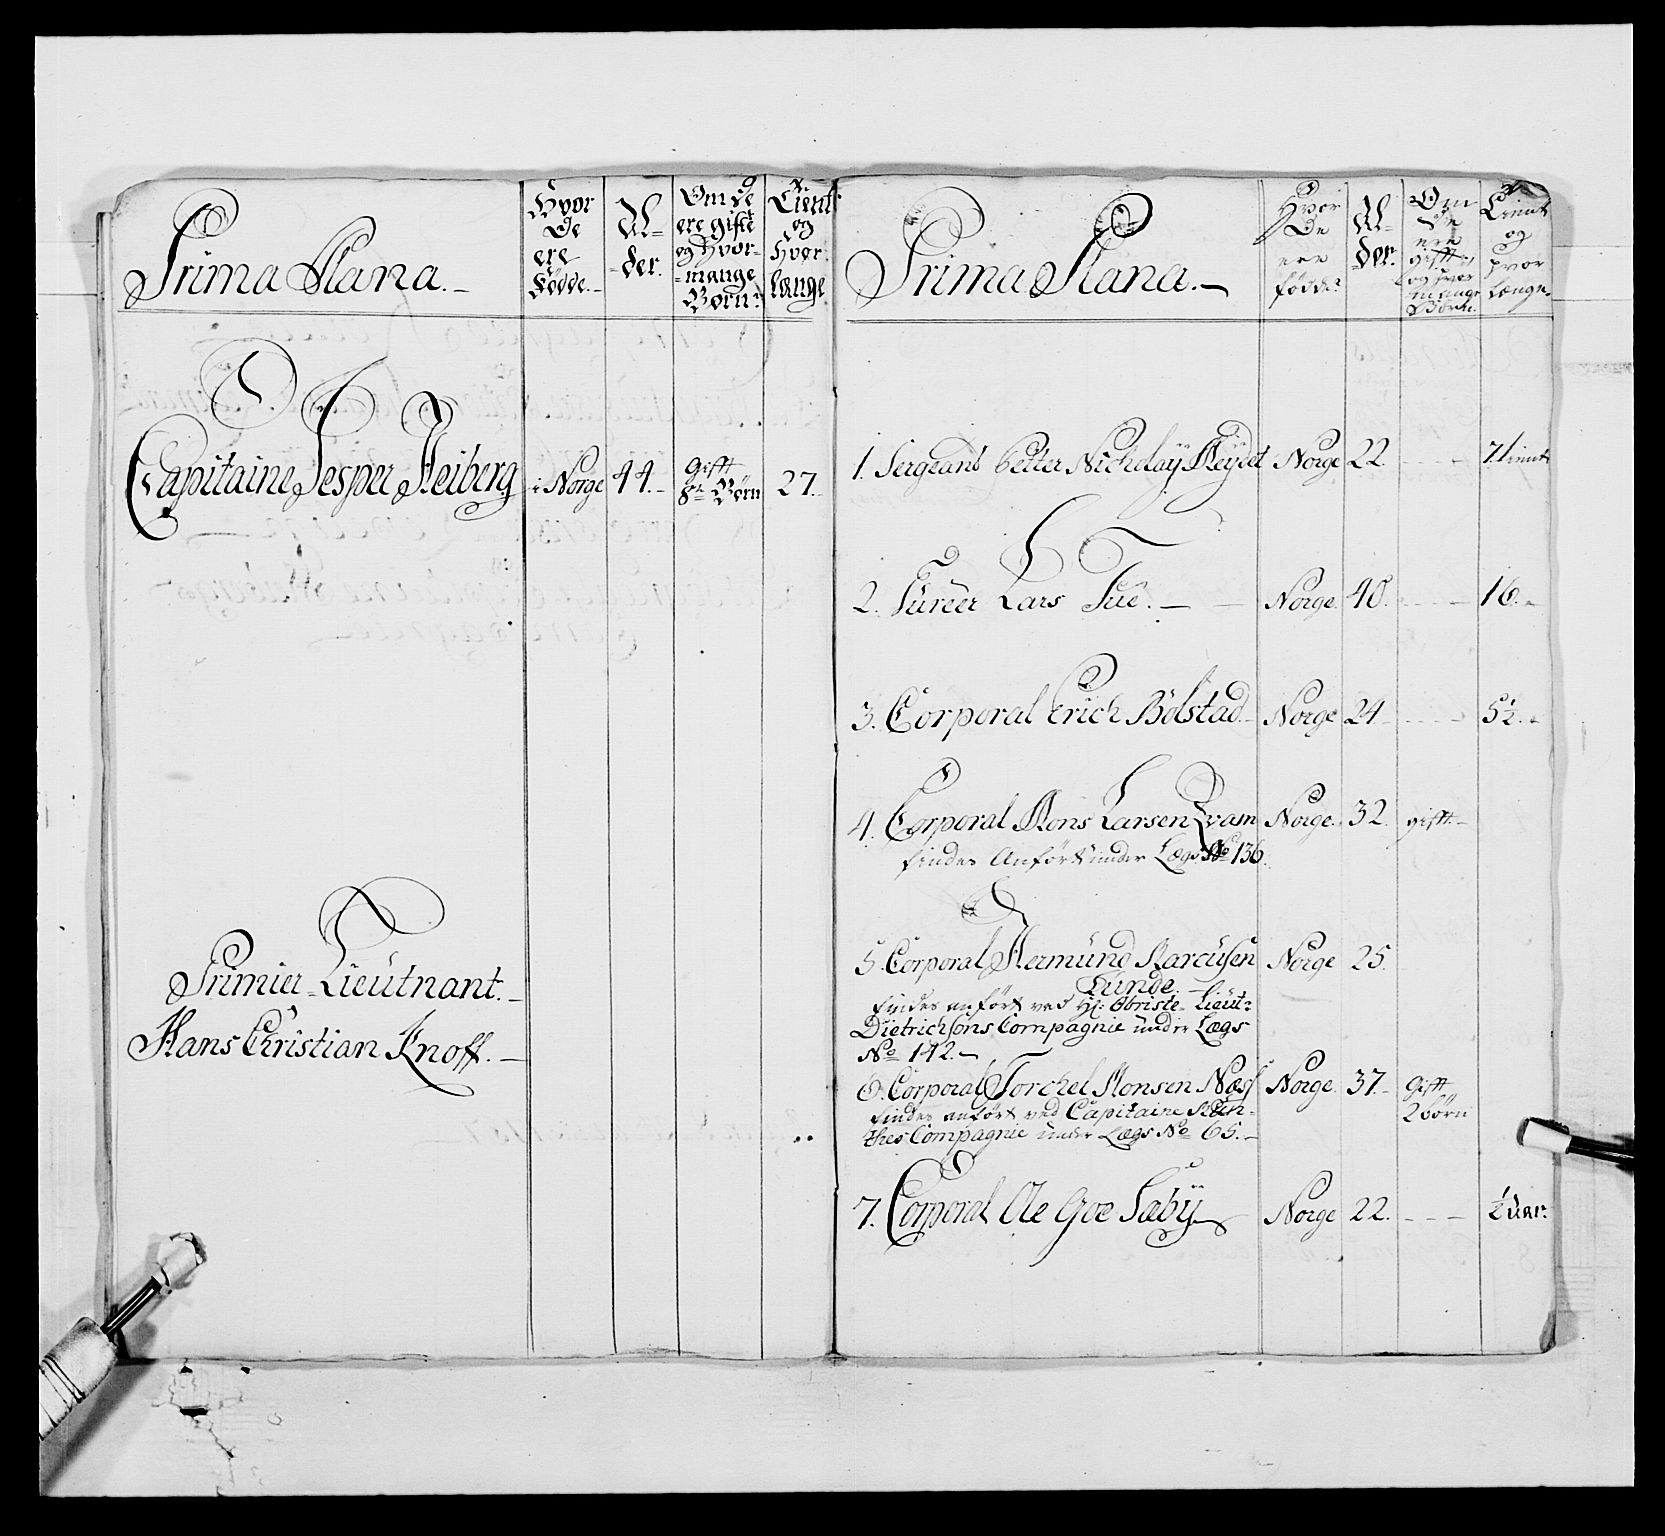 Prima Plana.
Hvor
De
ere
Födde.
Al-
der.
Om de
ere gifte
og Hvor-
mange
Børn:
Tient
og
Hvor
længe
Capitaine Jesper Heiberg
i Norge
44.
gifft
8te Börn
27.
Primier-Lieütnant.
Hans Christian Knoff.
Prima Plana.
Hvor
De
ere
födde
Al-
der.
Om
de
ere
giffte,
og hvor
mange
Børn.
Tient
og
hvor
længe.
1. Sergeant Petter Nicholaÿ Meÿdel Norge 22 - - 7. tient
2. Fureer Lars Tüe. Norge. 40. - - 16.
3. Corporal Erich Bölstad Norge 24 - - 5½.
4. Corporal Mons Larsen Qvam Norge. 32. gifft.
findes Anfört under Lægs No 136.
5. Corporal Hermünd Marcüsen Norge 25.
Tünde.
findes anfört ved Hl: Obriste-Lieut:
Dietrichsons Compagnie under Lægs
No 142.
6. Corporal Torchel Monsen Næss Norge. 37. Gifft
2 börn
findes anfört ved Capitaine Mün-
thes Compagnie under Lægs No 65.
7. Corporal Ole Goe Sæbÿ Norge 22. - - ½ aar.